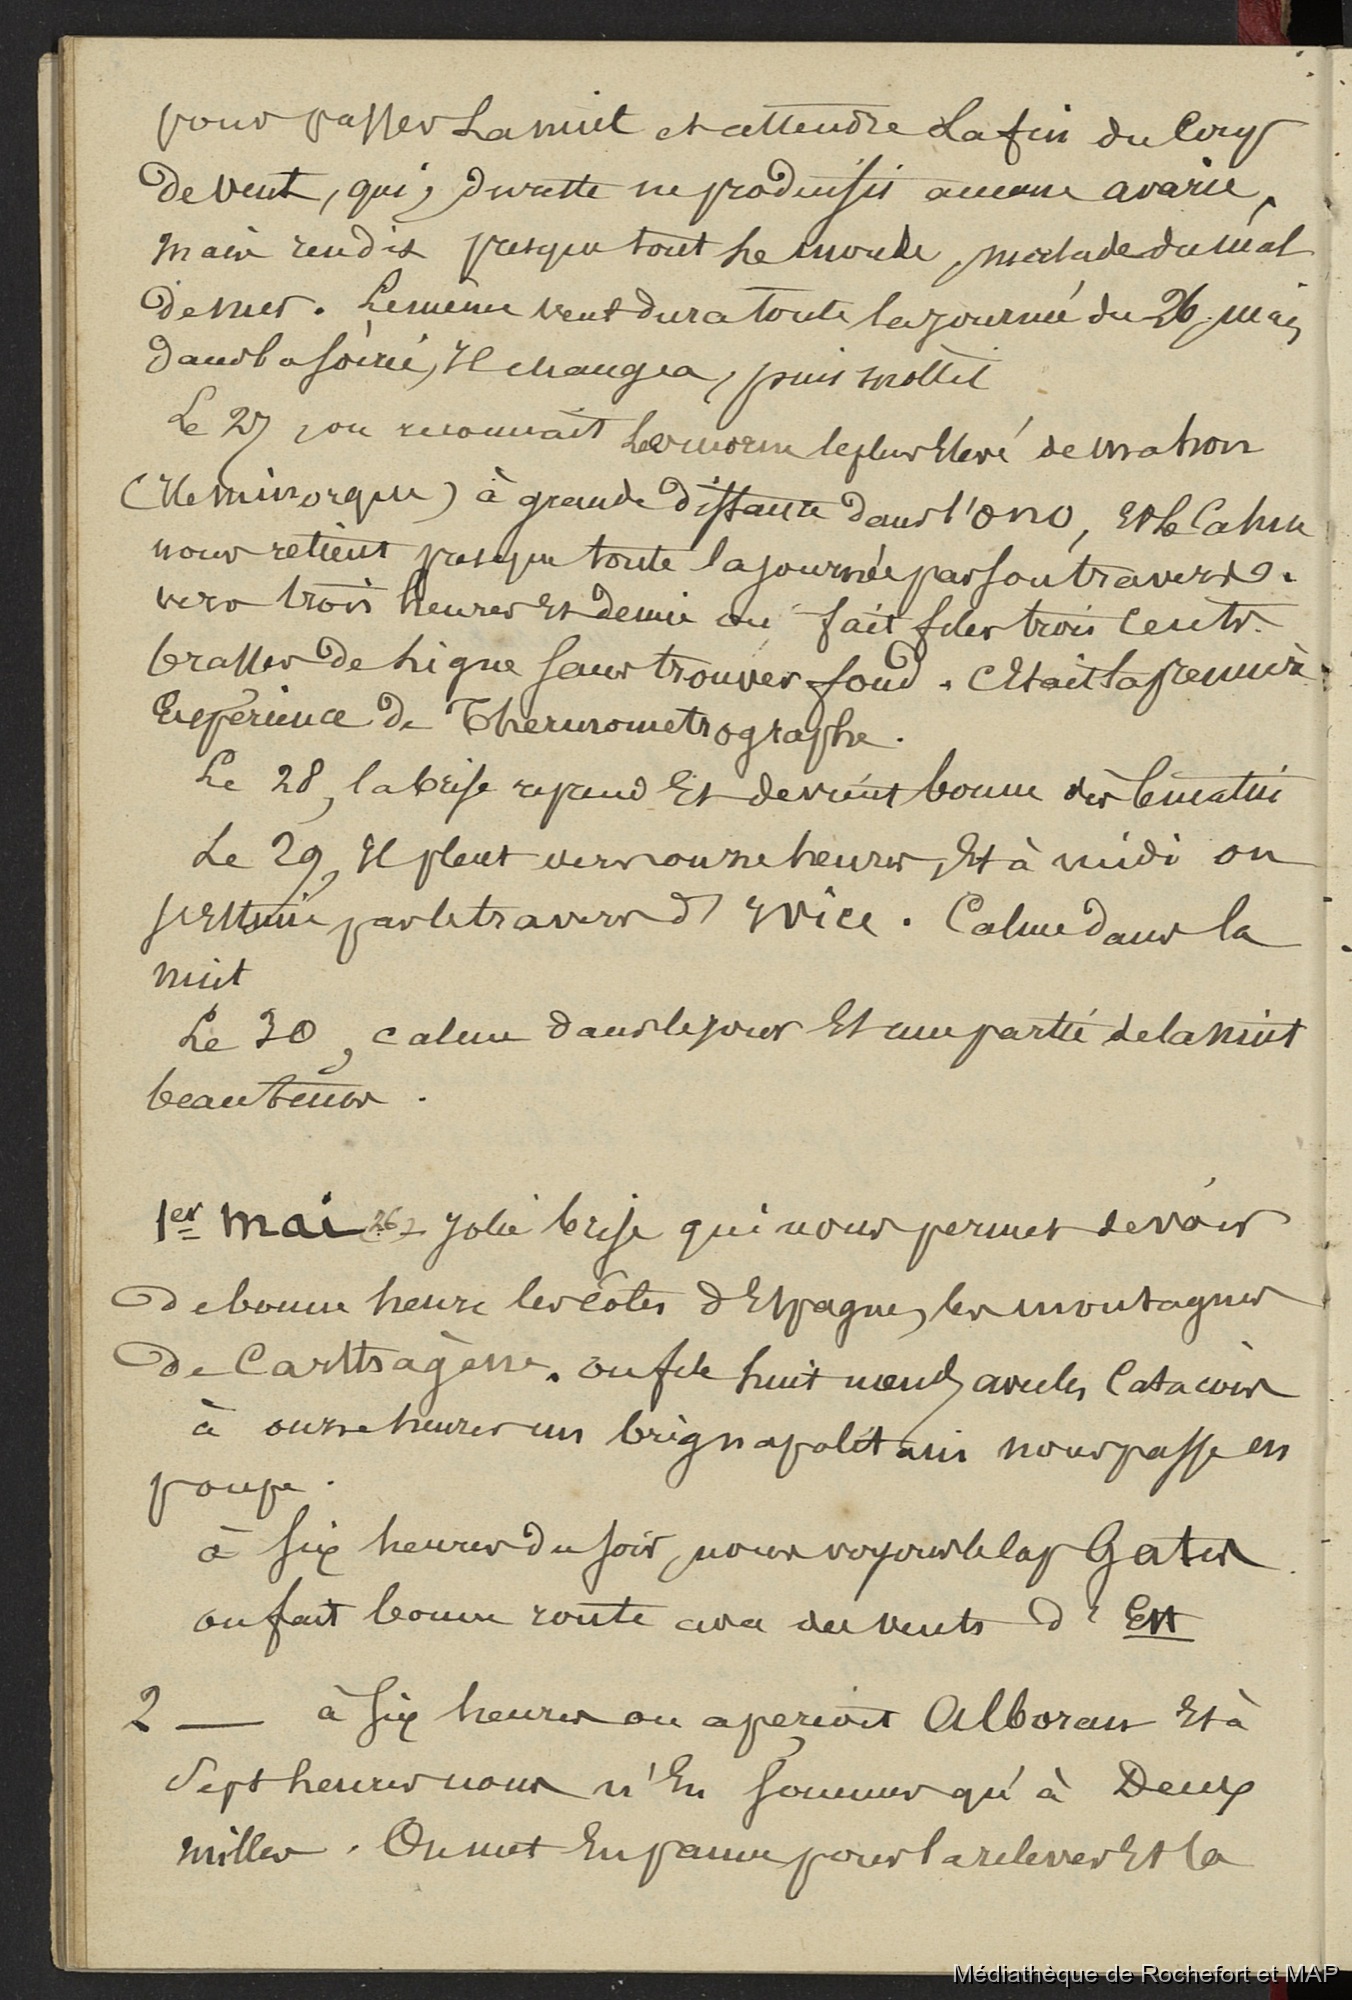 pour passer la nuit et attendre la fin du Coup
de vent, qui, du reste ne produisit aucune avarie,
mais rendit presque tout le monde malade du mal
de mer. Le même vent dura toute la journée du 26. Mais
dans la soirée, Il changea, puis mollit
Le 27, on reconnait le morne le plus Elevé de mahon
(Ile minorque) à grande distance dans l'ONO, Et le Calme
nous retient presque toute la journée par son travers.
vers trois heures Et demie on fait filer trois Cents
brasses de ligne sans trouver fond. C'Etait la première
Expérience de Thermometrographe.
Le 28, la brise reprend Et devient bonne dès le matin
Le 29, Il pleut vers onze heures, Et à midi on
s'Estime par le travers d'Ivice. Calme dans la
nuit
Le 30, calme dans le jour Et une partie de la nuit
beau temps.
1er mai (26) Jolie brise qui nous permet de voir
de bonne heure les côtes d'Espagne, les montagnes
de Carthagène. On file huit nœuds avec les Catacois
à onze heures un brig napolitain nous passe en
poupe.
à six heures du soir, nous voyons le Cap Gates
on fait bonne route avec des vents d'Est
2 — à six heures on aperçoit Alboran Et à
Sept heures nous n'En sommes qu'à Deux
milles. On met En panne pour la relever Et la
Médiathèque de Rochefort et MAP